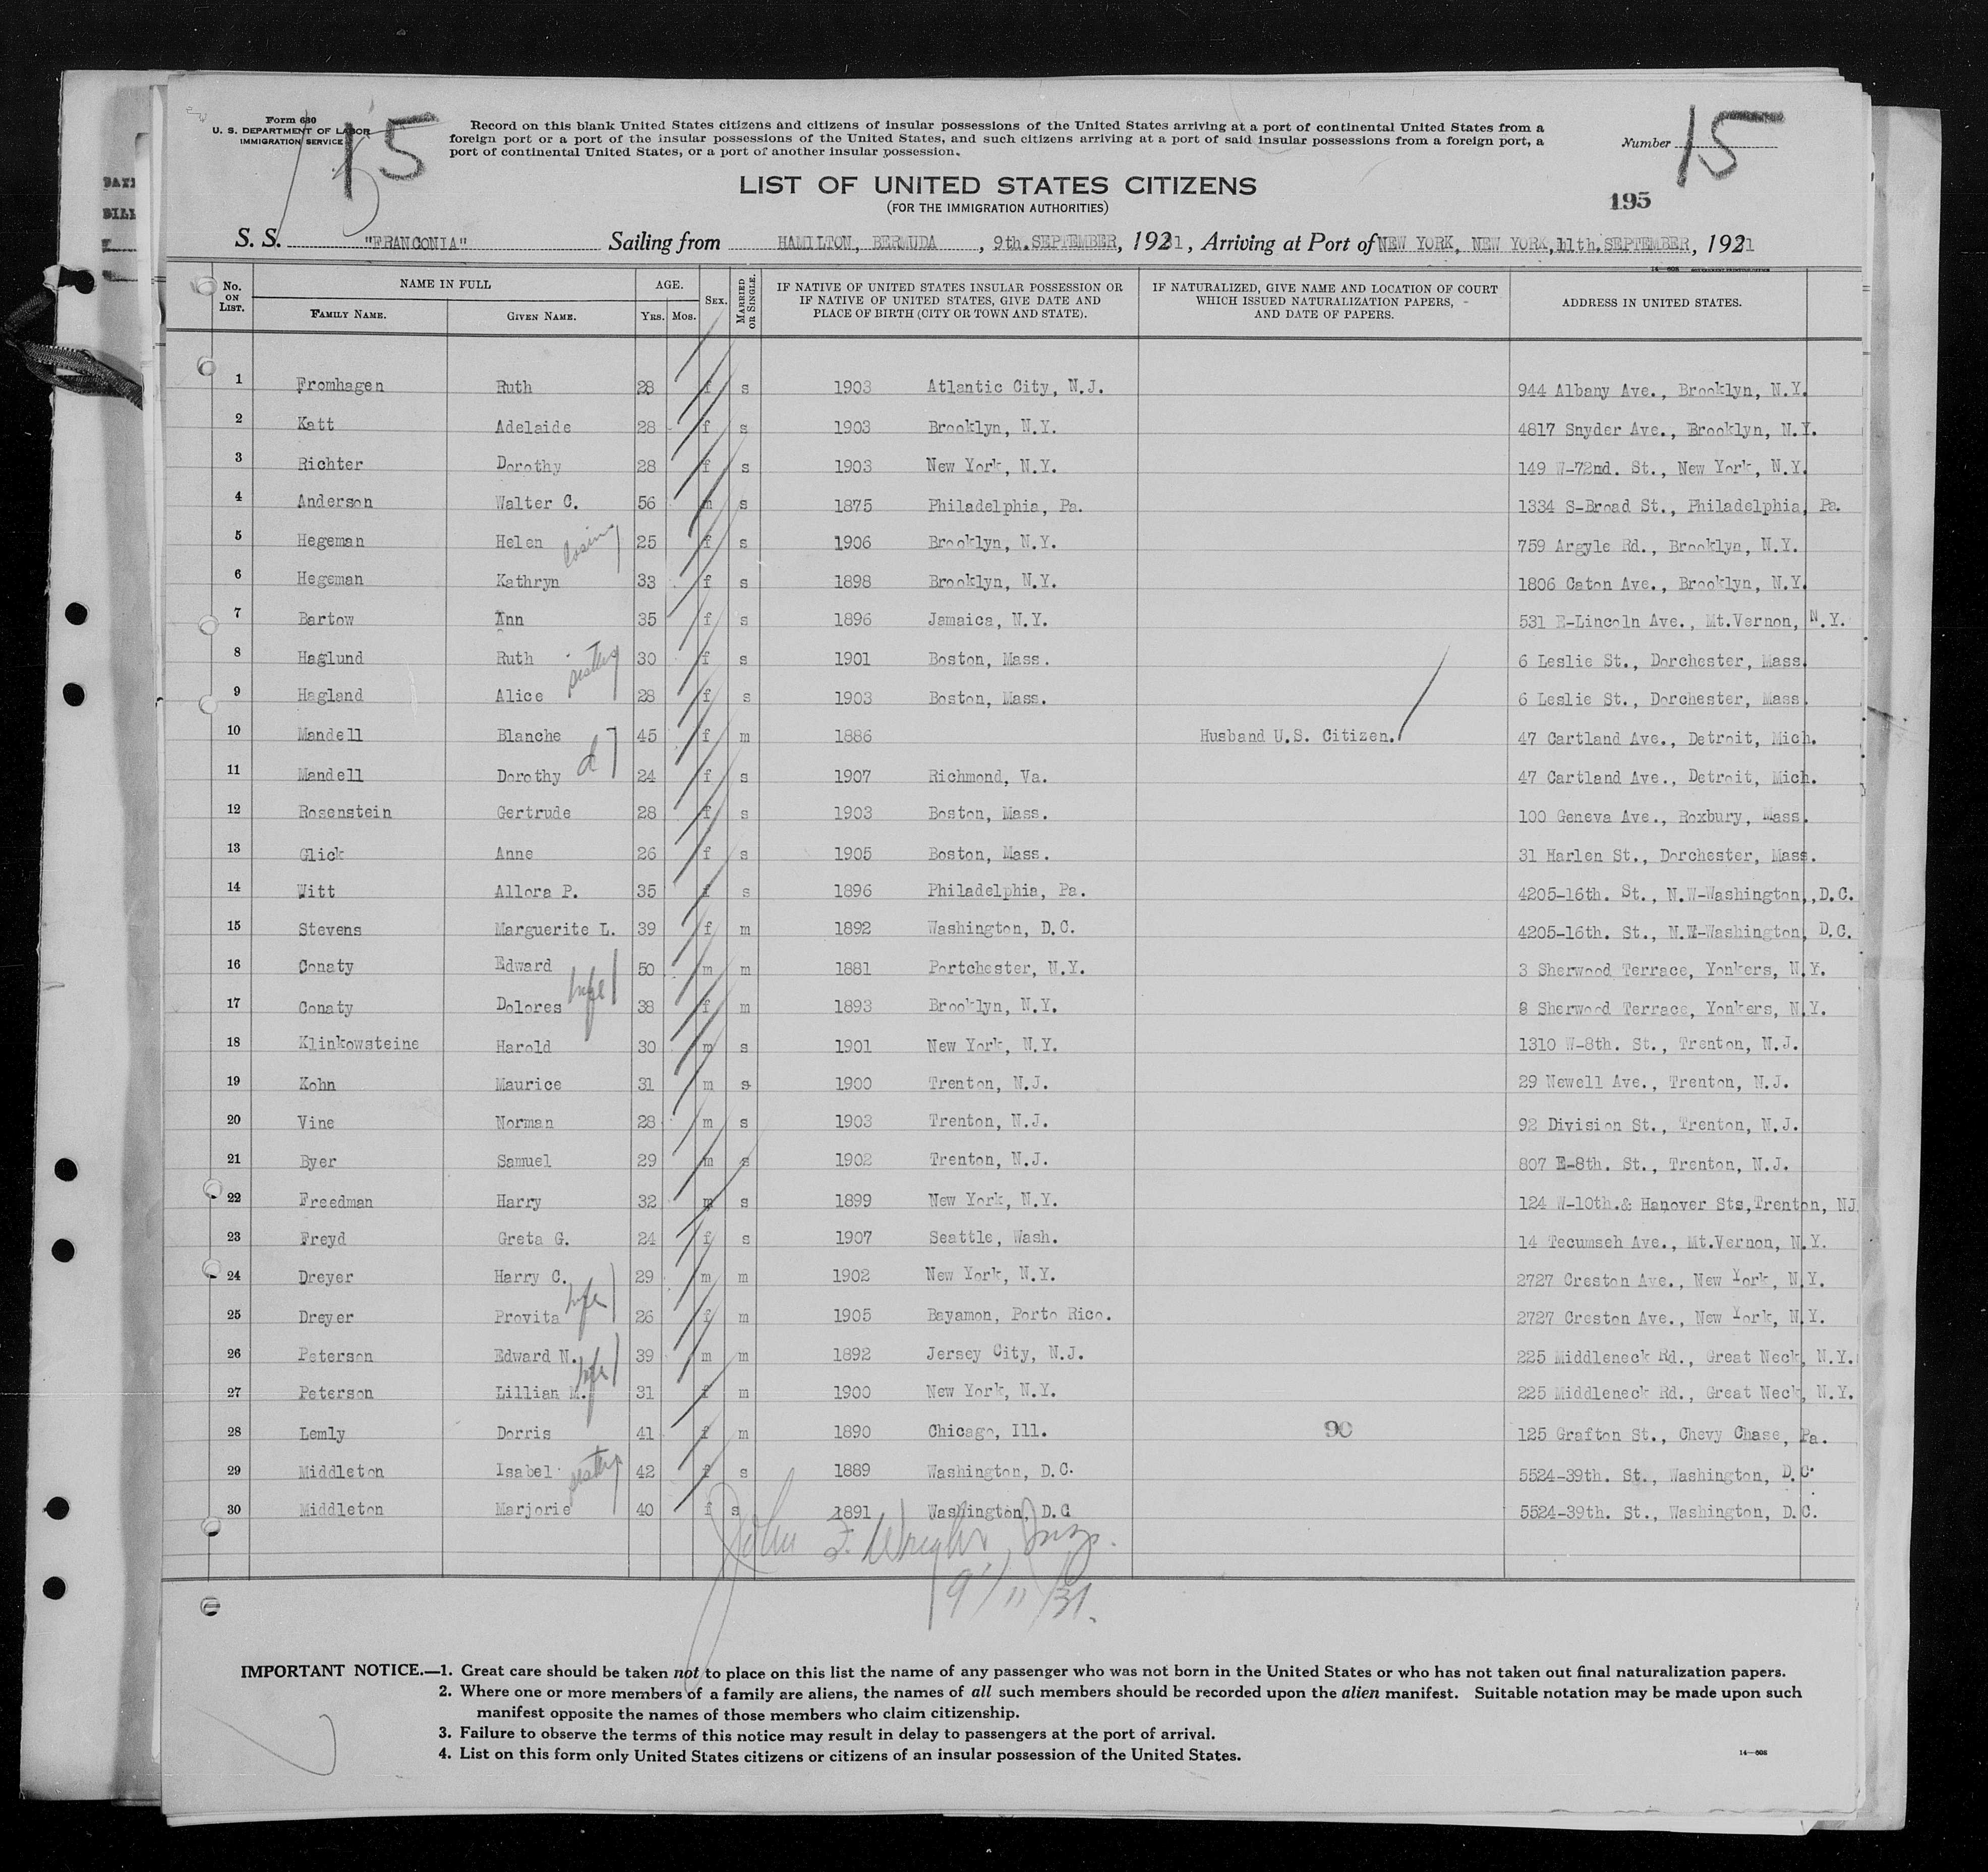 Form 630
U. S. DEPARTMENT OF LABOR
IMMIGRATION SERVICE
15
Record on this blank United States citizens and citizens of insular possessions of the United States arriving at a port of continental United States from a
foreign port or a port of the insular possessions of the United States, and such citizens arriving at a port of said insular possessions from a foreign port, a
port of continental United States, or a port of another insular possession.
Number 15
LIST OF UNITED STATES CITIZENS
(FOR THE IMMIGRATION AUTHORITIES)
195
S. S. "FRANCONIA" Sailing from HAMILTON, BERMUDA , 9th.SEPTEMBER, 1931, Arriving at Port of NEW YORK, NEW YORK,11th.SEPTEMBER, 1931
No. ON LIST. NAME IN FULL FAMILY NAME. GIVEN NAME. AGE. YRS. MOS. SEX. MARRIED OR SINGLE. IF NATIVE OF UNITED STATES INSULAR POSSESSION OR IF NATIVE OF UNITED STATES, GIVE DATE AND PLACE OF BIRTH (CITY OR TOWN AND STATE). IF NATURALIZED, GIVE NAME AND LOCATION OF COURT WHICH ISSUED NATURALIZATION PAPERS, AND DATE OF PAPERS. ADDRESS IN UNITED STATES.
1 Fromhagen Ruth 28 f s 1903 Atlantic City, N.J. 944 Albany Ave., Brooklyn, N.Y.
2 Katt Adelaide 28 f s 1903 Brooklyn, N.Y. 4817 Snyder Ave., Brooklyn, N.Y.
3 Richter Dorothy 28 f s 1903 New York, N.Y. 149 W-72nd. St., New York, N.Y.
4 Anderson Walter C. 56 m s 1875 Philadelphia, Pa. 1334 S-Broad St., Philadelphia, Pa.
5 Hegeman Helen 25 f s 1906 Brooklyn, N.Y. 759 Argyle Rd., Brooklyn, N.Y.
6 Hegeman Kathryn 33 f s 1898 Brooklyn, N.Y. 1806 Caton Ave., Brooklyn, N.Y.
7 Bartow Ann 35 f s 1896 Jamaica, N.Y. 531 E-Lincoln Ave., Mt.Vernon, N.Y.
8 Haglund Ruth sisters 30 f s 1901 Boston, Mass. 6 Leslie St., Dorchester, Mass.
9 Hagland Alice 28 f s 1903 Boston, Mass. 6 Leslie St., Dorchester, Mass.
10 Mandell Blanche 45 f m 1886 Husband U.S. Citizen. 47 Cartland Ave., Detroit, Mich.
11 Mandell Dorothy d 24 f s 1907 Richmond, Va. 47 Cartland Ave., Detroit, Mich.
12 Rosenstein Gertrude 28 f s 1903 Boston, Mass. 100 Geneva Ave., Roxbury, Mass.
13 Glick Anne 26 f s 1905 Boston, Mass. 31 Harlen St., Dorchester, Mass.
14 Witt Allora P. 35 f s 1896 Philadelphia, Pa. 4205-16th. St., N.W-Washington,,D.C.
15 Stevens Marguerite L. 39 f m 1892 Washington, D.C. 4205-16th. St., N.W-Washington, D.C.
16 Conaty Edward 50 m m 1881 Portchester, N.Y. 3 Sherwood Terrace, Yonkers, N.Y.
17 Conaty Dolores wife 38 f m 1893 Brooklyn, N.Y. 8 Sherwood Terrace, Yonkers, N.Y.
18 Klinkowsteine Harold 30 m s 1901 New York, N.Y. 1310 W-8th. St., Trenton, N.J.
19 Kohn Maurice 31 m s 1900 Trenton, N.J. 29 Newell Ave., Trenton, N.J.
20 Vine Norman 28 m s 1903 Trenton, N.J. 92 Division St., Trenton, N.J.
21 Byer Samuel 29 m s 1902 Trenton, N.J. 807 E-8th. St., Trenton, N.J.
22 Freedman Harry 32 m s 1899 New York, N.Y. 124 W-10th.& Hanover Sts,Trenton, NJ
23 Freyd Greta G. 24 f s 1907 Seattle, Wash. 14 Tecumseh Ave., Mt.Vernon, N.Y.
24 Dreyer Harry C. 29 m m 1902 New York, N.Y. 2727 Creston Ave., New York, N.Y.
25 Dreyer Provita wife 26 f m 1905 Bayamon, Porto Rico. 2727 Creston Ave., New York, N.Y.
26 Peterson Edward N. 39 m m 1892 Jersey City, N.J. 225 Middleneck Rd., Great Neck, N.Y.
27 Peterson Lillian M. wife 31 f m 1900 New York, N.Y. 225 Middleneck Rd., Great Neck, N.Y.
28 Lemly Dorris 41 f m 1890 Chicago, Ill. 90 125 Grafton St., Chevy Chase, Pa.
29 Middleton Isabel sisters 42 f s 1889 Washington, D.C. 5524-39th. St., Washington, D.C.
30 Middleton Marjorie 40 f s 1891 Washington, D.C 5524-39th. St., Washington, D.C.
John F. Wright Insp.
9/11/31.
IMPORTANT NOTICE.—1. Great care should be taken not to place on this list the name of any passenger who was not born in the United States or who has not taken out final naturalization papers.
2. Where one or more members of a family are aliens, the names of all such members should be recorded upon the alien manifest. Suitable notation may be made upon such
manifest opposite the names of those members who claim citizenship.
3. Failure to observe the terms of this notice may result in delay to passengers at the port of arrival.
4. List on this form only United States citizens or citizens of an insular possession of the United States.
14—608